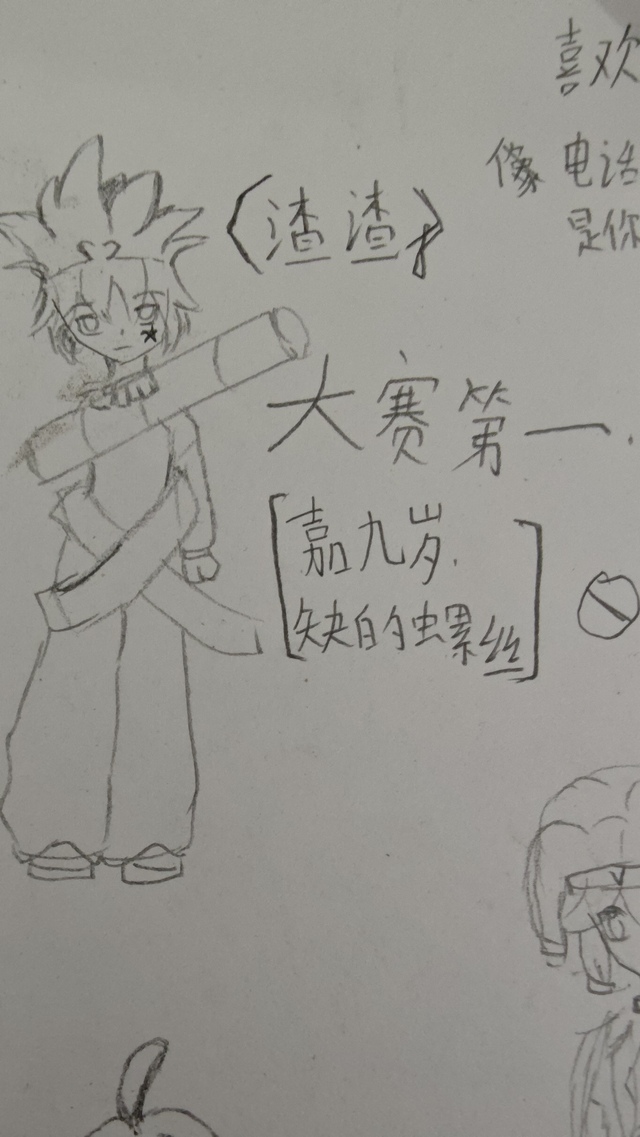 喜欢
像电话
是你
〈渣渣〉
大赛第一.
嘉九岁.
缺的螺丝